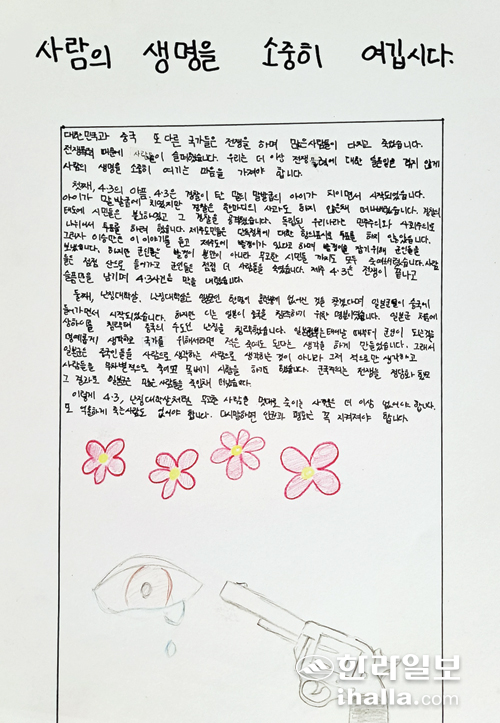 사람의 생명을 소중히 여깁시다.
대한민국과 중국 또 다른 국가들은 전쟁을 하며 많은 사람들이 다치고 죽었습니다.
전쟁 때문에 사람들이 희생했습니다. 우리는 더 이상 전쟁 대한 겪지 않게
사람의 생명을 소중히 여기는 마음을 가져야 합니다.
첫째, 4·3의 아픔 4·3은 경찰이 탄 말의 말발굽에 아이가 치이면서 시작되었습니다.
아이가 말발굽에 치였지만 경찰은 한마디의 사과도 하지 않은채 떠나버렸습니다. 경찰의
태도에 시민들은 분노하였고 그 경찰을 습니다. 독립된 우리나라는 민주주의와 사회주의로
나뉘어서 투표를 하려 했습니다. 제주도민들은 투표를 하지 않았습니다.
그래서 이승만은 이 이야기를 듣고 제주도에 빨갱이가 있다고 하며 빨갱이를 잡기위해 군인들을
보냈습니다. 하지만 군인들은 빨갱이 뿐만이 아니라 무고한 시민들 까지도 모두 죽여버렸습니다. 사람
들은 점점 산으로 들어가고 군인들은 점점 더 사람들을 죽였습니다. 제주 4·3은 전쟁이 끝나고
슬픔만을 남기며 4·3사건은 막을 내렸습니다.
둘째, 난징대학살, 난징대학살은 일본군 한명이 없어진 것을 일본군들이 중국에
들어가면서 시작되었습니다. 하지만 이는 일본이 중국을 침략하기 위한 명분이었습니다. 일본군 처음에
상하이를 침략해 중국의 수도인 난징을 침략했습니다. 일본 태어날 때부터 군인이 되는것을
명예롭게 생각하고 국가를 위해서라면 죽어도 된다는 생각을 하게 만들었습니다. 그래서
일본군은 중국인들을 사람으로 생각하는 것이 아니라 그저 적으로만 생각하고
사람들을 무차별적으로 죽이고 목베기 시합을 하기도 했습니다. 군국주의는 전쟁을 정당화
그 결과로 일본군은 많은 사람들을 죽였습니다.
이렇게 4·3, 난징대학살처럼 무고한 사람을 맘대로 죽이는 사람은 더 이상 없어야 합니다.
또 억울하게 죽는사람도 없어야 합니다. 다시말하면 인권과 평화는 꼭 지켜져야 합니다.
한라일보
ihalla.com